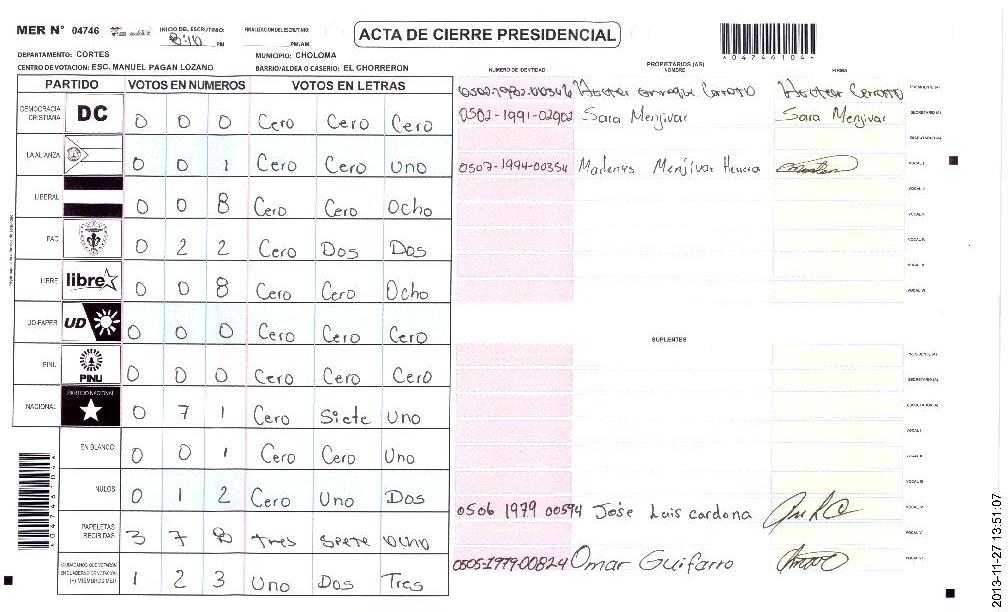 MER N° 04746 INICIO DEL ESCRUTINIO: 8:10 PM FINALIZACION DEL ESCRUTINIO: PM/AM ACTA DE CIERRE PRESIDENCIAL *047461044*
DEPARTAMENTO: CORTES MUNICIPIO: CHOLOMA
CENTRO DE VOTACION: ESC. MANUEL PAGAN LOZANO BARRIO/ALDEA O CASERIO: EL CHORRERON
PARTIDO VOTOS EN NUMEROS VOTOS EN LETRAS
DEMOCRACIA CRISTIANA DC 0 0 0 Cero Cero Cero
LA ALIANZA 0 0 1 Cero Cero Uno
LIBERAL 0 0 8 Cero Cero Ocho
PAC 0 2 2 Cero Dos Dos
LIBRE libre 0 0 8 Cero Cero Ocho
UD-FAPER UD 0 0 0 Cero Cero Cero
PINU PINU 0 0 0 Cero Cero Cero
NACIONAL PARTIDO NACIONAL 0 7 1 Cero Siete Uno
EN BLANCO 0 0 1 Cero Cero Uno
NULOS 0 1 2 Cero Uno Dos
PAPELETAS RECIBIDAS 3 7 8 tres
CIUDADANOS QUE VOTARON EN CUADERNO DE VOTACION (+) MIEMBROS MER 1 2 3 Uno Dos Tres
NUMERO DE IDENTIDAD PROPIETARIOS (AS) NOMBRE FIRMA
Hector Enrique Cerrato Hector Cerrato PRESIDENTE (A)
0502-1991-02902 Sara Menjivar Sara Menjivar SECRETARIO (A)
ESCRUTADOR (A)
0502-1994-00354 Marlenys Menjivar VOCAL I
VOCAL II
VOCAL III
VOCAL IV
VOCAL V
VOCAL VI
SUPLENTES
PRESIDENTE (A)
SECRETARIO (A)
ESCRUTADOR (A)
VOCAL I
VOCAL II
VOCAL III
0506 1979 00594 Jose Luis cardona VOCAL IV
VOCAL V
0505-1979-00824 Omar Guifarro VOCAL VI
2013-11-27 13:51:07